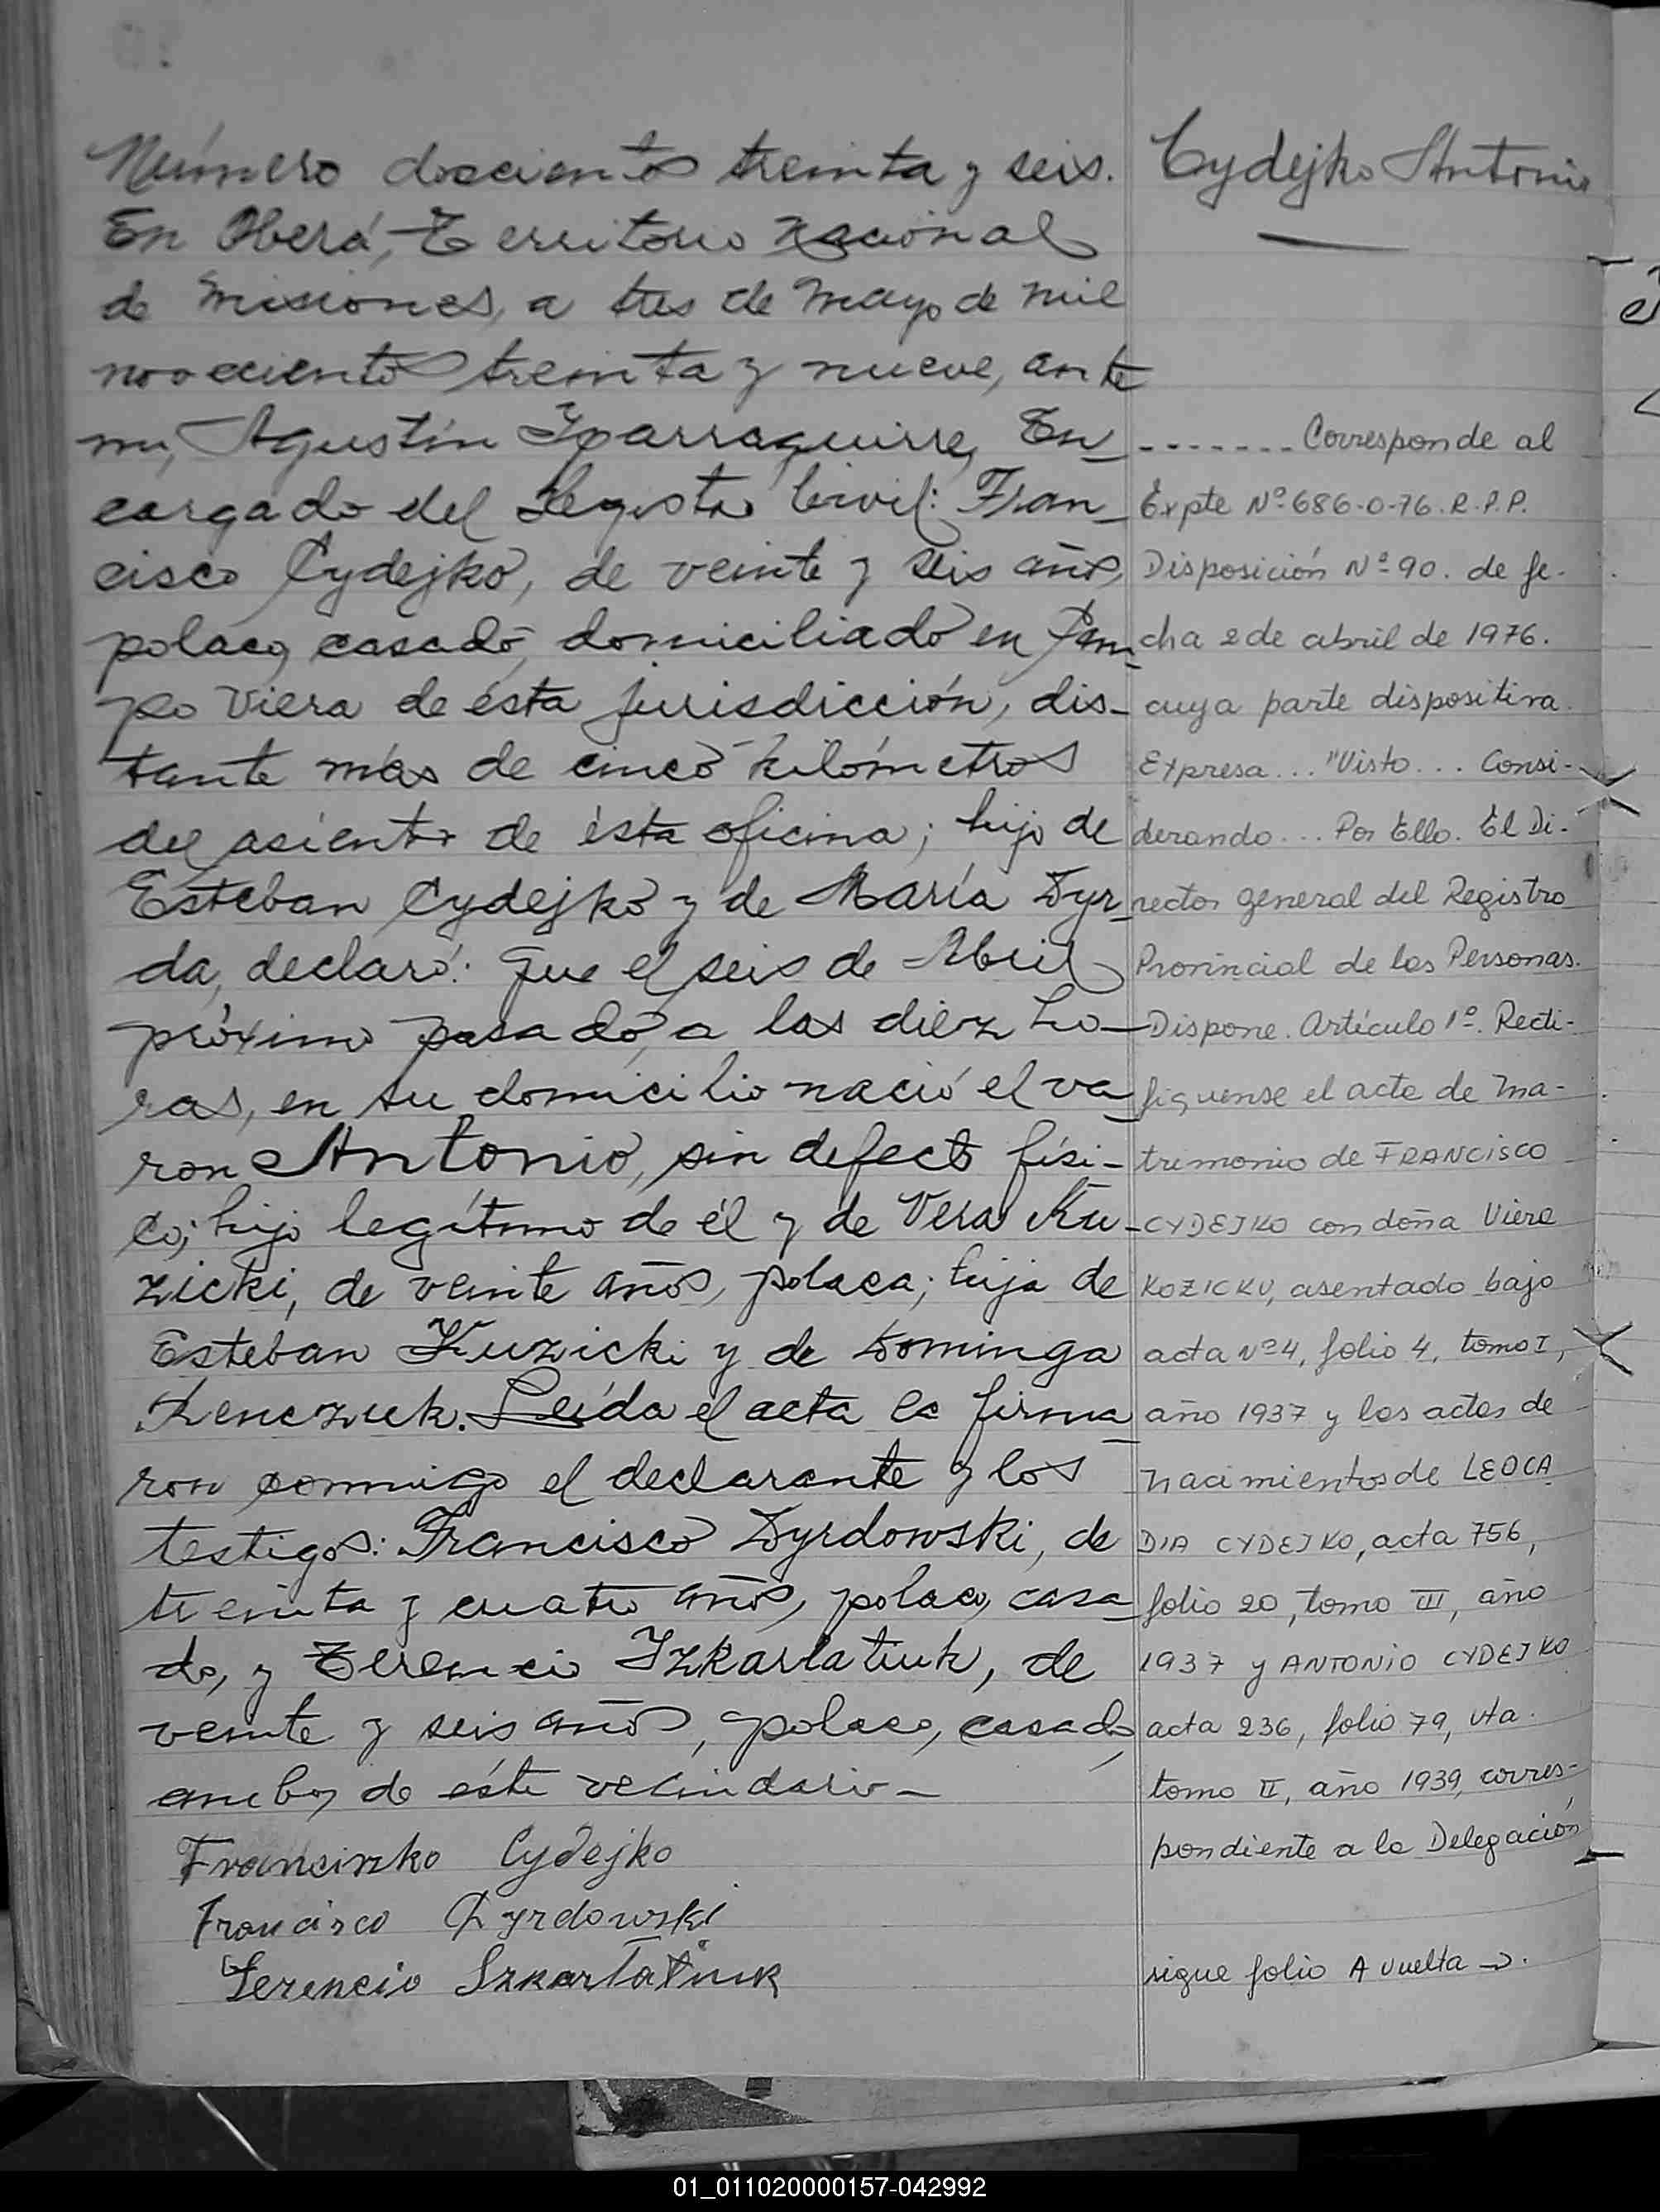 Número doscientos treinta y seis.
En Oberá, Territorio Nacional
de Misiones, a tres de Mayo de mil
novecientos treinta y nueve, ante
mi, Agustín Yparraguirre, En_
cargado del Registro Civil: Fran_
cisco Cydejko, de veinte y seis años,
polaco, casado, domiciliado en Cam_
po Viera de ésta jurisdicción, dis_
tante más de cinco kilómetros
del asiento de ésta oficina; hijo de
Esteban Cydejko y de María Dyr_
da, declaró: Que el seis de Abril
próximo pasado, a las diez ho_
ras, en su domicilio nació el va_
ron Antonio, sin defecto físi_
co; hijo legítimo de él y de Vera Ku_
zicki, de veinte años, polaca; hija de
Esteban Kuzicki y de Dominga
Leída el acta la firma_
ron conmigo el declarante y los
testigos: Francisco Dyrdowski, de
treinta y cuatro años, polaco, casa_
do, y Terencio Szkarlatiuk, de
veinte y seis años, polaco, casado,
ambos de éste vecindario_
Francizko Cydejko
Francisco Dyrdowski
Terencio Szkarlatiuk
Cydejko Antonio
------- Corresponde al
Expte Nº 686-0-76. R.P.P.
Disposición Nº 90. de fe-
cha 2 de abril de 1976.
cuya parte dispositiva.
Expresa... "Visto... Consi-
derando... Por Ello. El Di-
rector General del Registro
Provincial de las Personas.
Dispone. Artículo 1º. Recti-
fiquense el acta de ma-
trimonio de FRANCISCO
CYDEJKO con doña Viera
KOZICKU, asentado bajo
acta Nº 4, folio 4, tomo I,
año 1937 y las actas de
nacimientos de LEOCA
DIA CYDEJKO, acta 756,
folio 20, tomo III, año
1937 y ANTONIO CYDEJKO
acta 236, folio 79, vta.
tomo II, año 1939, corres-
pondiente a la Delegación
sigue folio A vuelta →.
01_011020000157-042992